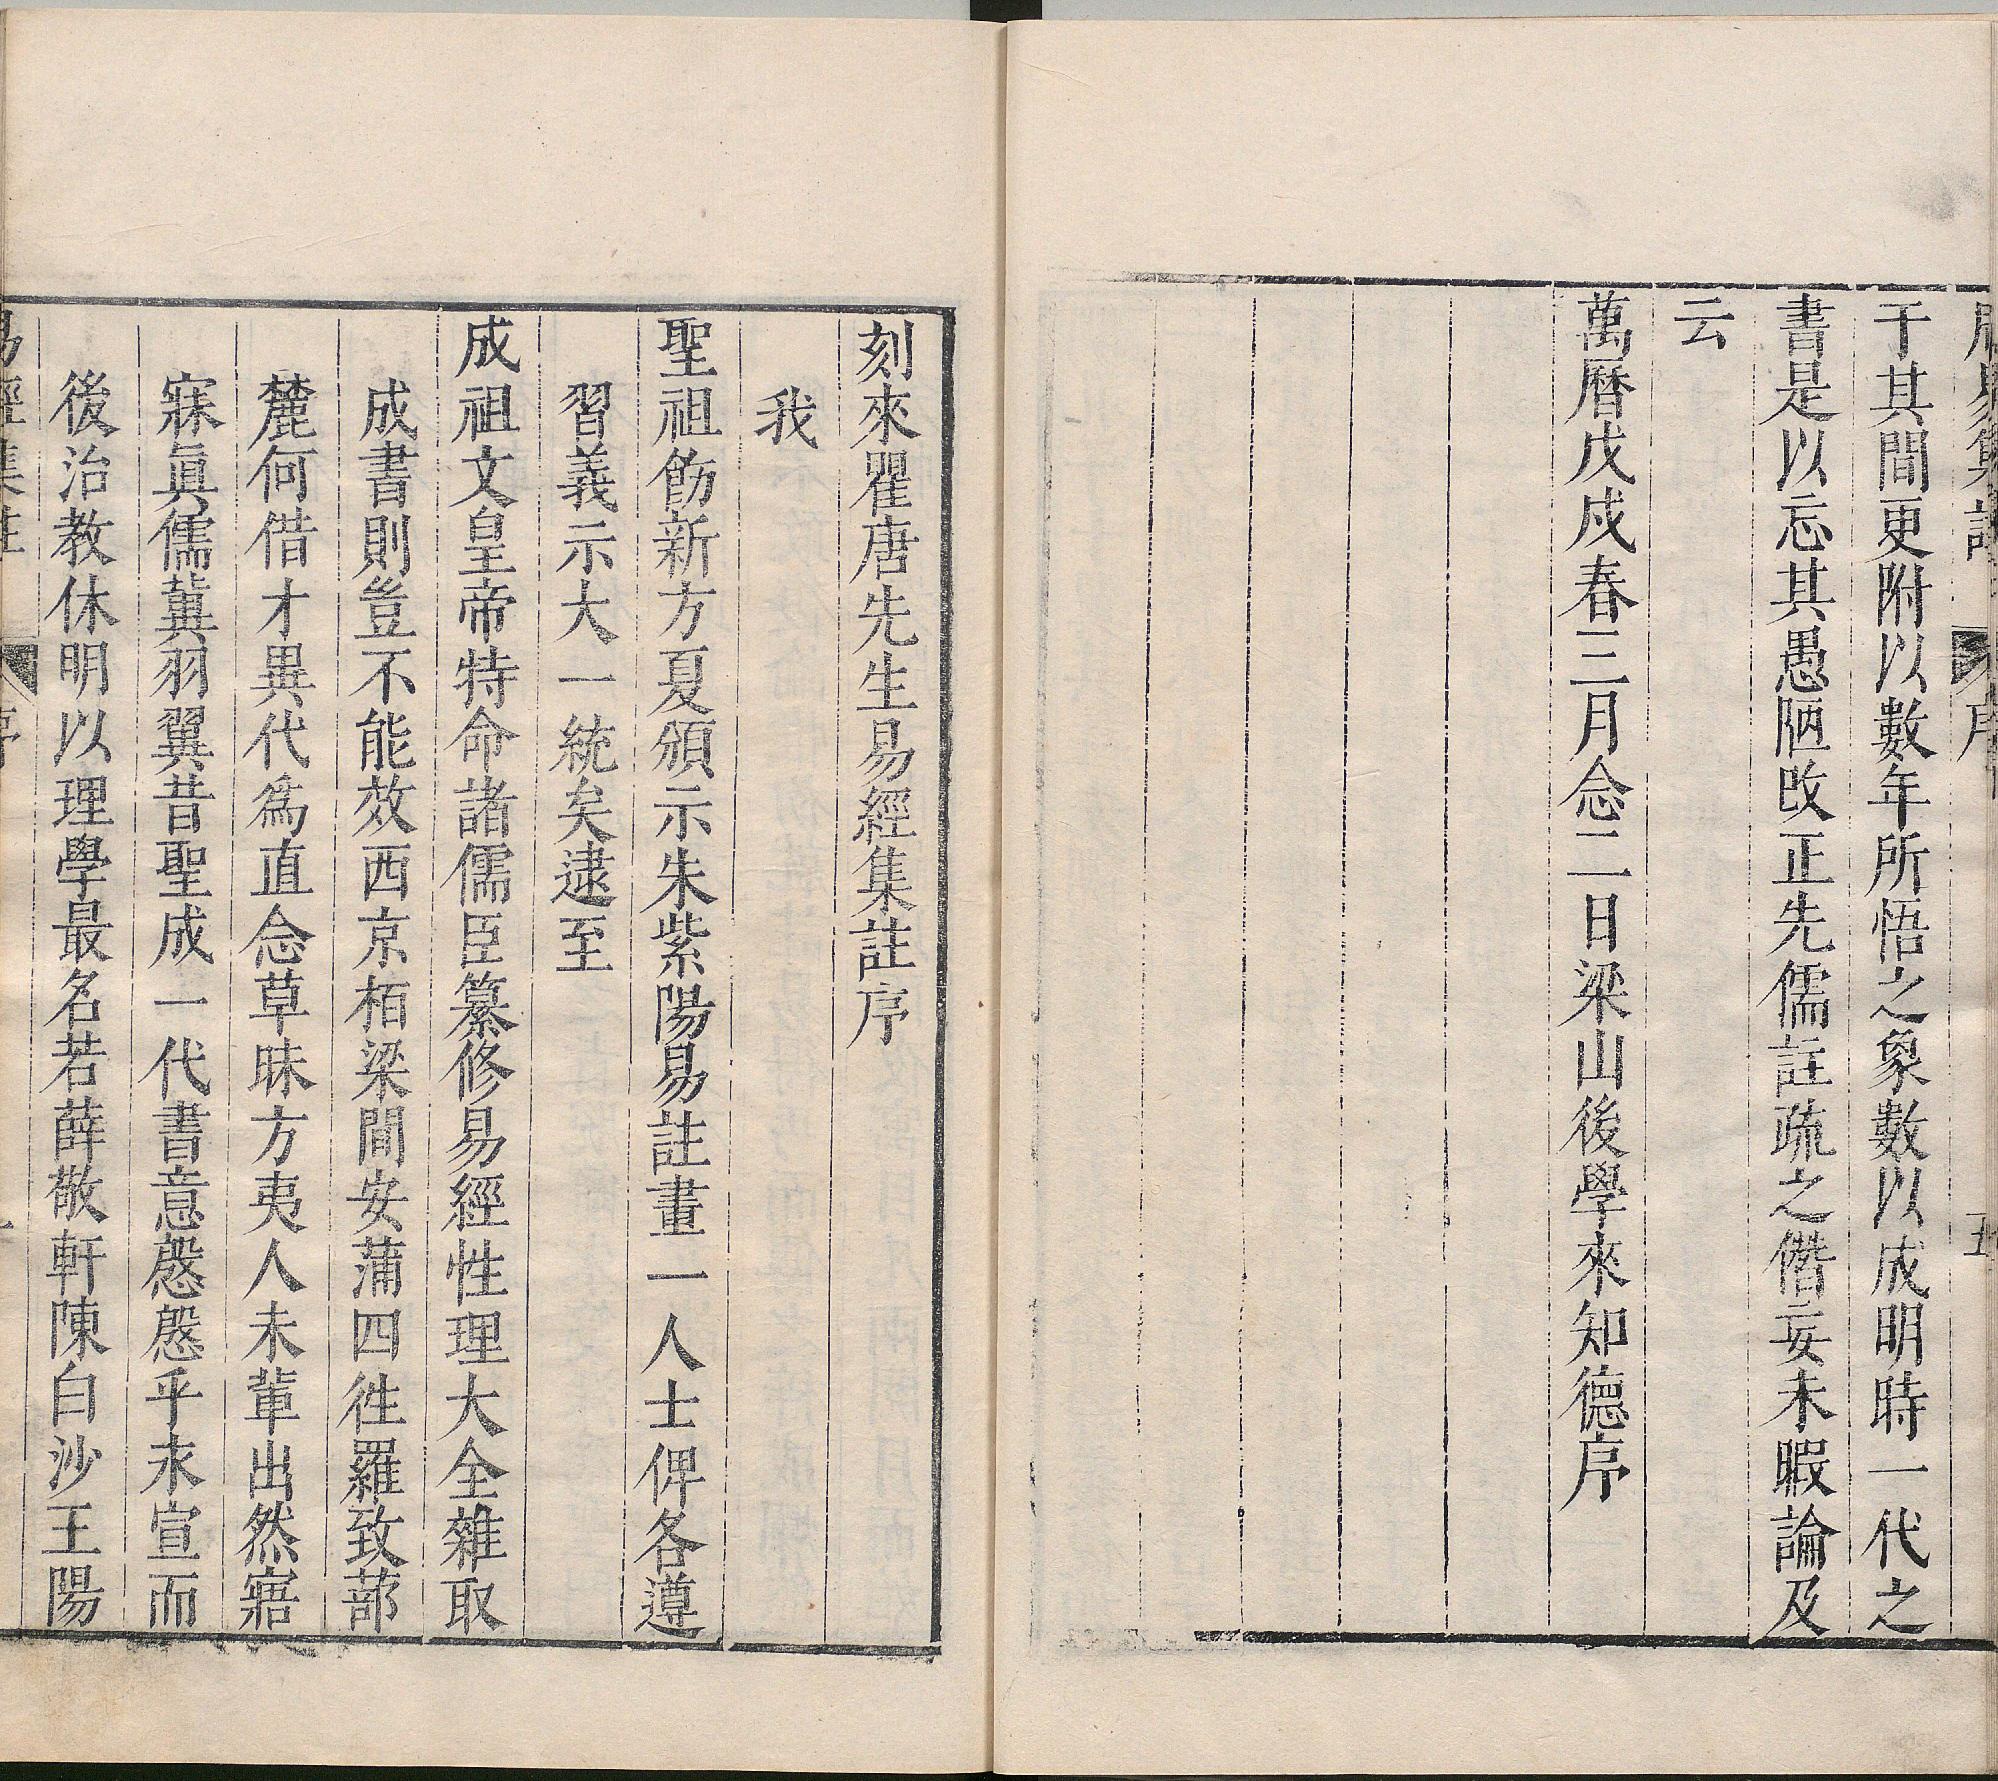 周易集註 序 五
于其間更附以數年所悟之象數以成明時一代之
書是以忘其愚陋改正先儒註疏之僭妄未暇論及
云
萬曆戊戌春三月念二日梁山後學來知德序
刻來瞿唐先生易經集註序
我
聖祖飭新方夏頒示朱紫陽易註畫一人士俾各遵
習義示大一統矣逮至
成祖文皇帝特命諸儒臣纂修易經性理大全雜取
成書則豈不能效西京栢梁間安蒲四徃羅致蔀
麓何借才異代爲直念草昧方夷人未輩出然寤
寐眞儒冀羽翼昔聖成一代書意慇慇乎末宣而
後治教休明以理學最名若薛敬軒陳白沙王陽
易經集註 序